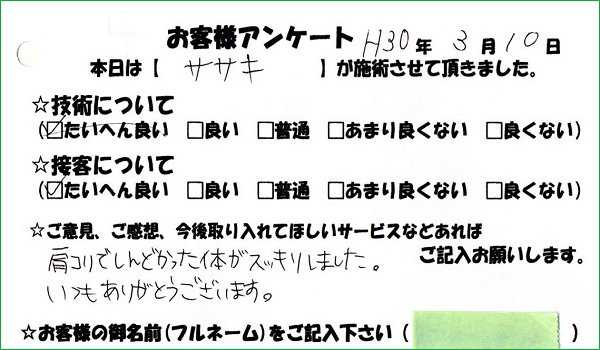 お客様アンケート H30年 3月10日
本日は【 ササキ 】が施術させて頂きました。
☆技術について
(☑たいへん良い □良い □普通 □あまり良くない □良くない)
☆接客について
(☑たいへん良い □良い □普通 □あまり良くない □良くない)
☆ご意見、ご感想、今後取り入れてほしいサービスなどあれば
ご記入お願いします。
肩コリでしんどかった体がスッキリしました。
いつもありがとうございます。
☆お客様の御名前(フルネーム)をご記入下さい( )